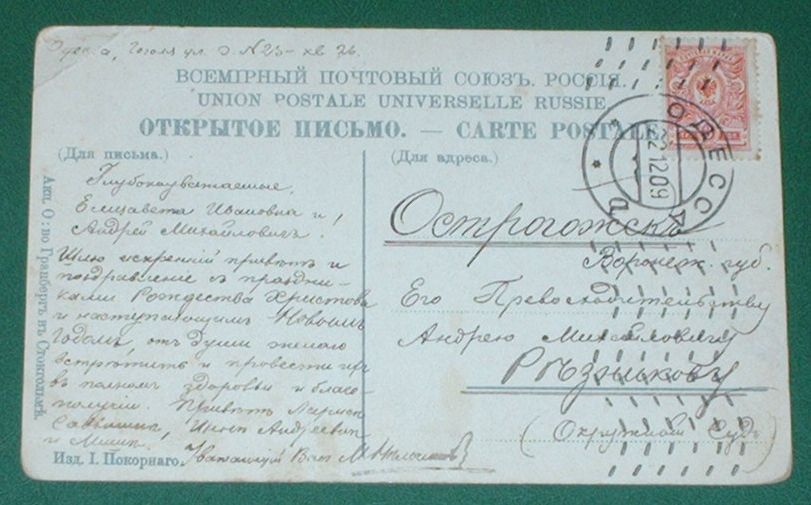 Одесса, Гоголя ул. д. N 23 - кв 26.
ВСЕМІРНЫЙ ПОЧТОВЫЙ СОЮЗЪ. РОССІЯ.
UNION POSTALE UNIVERSELLE RUSSIE.
ОТКРЫТОЕ ПИСЬМО. — CARTE POSTALE.
(Для письма.)
Глубокоуважаемые,
Елизавета Ивановна и
Андрей Михайловичъ!
Шлю искренній привѣтъ и
поздравленіе съ праздни-
ками Рождества Христова
и наступающимъ Новымъ
Годомъ, отъ души желаю
встрѣтить и провести их
въ полномъ здоровьи и благо-
получіи. Привѣтъ
и
Уважающій Васъ
Изд. І. Покорнаго.
Акц. О-во Гранбергъ въ Стокгольмѣ.
(Для адреса.)
Острогожскъ
Воронеж. губ.
Его Превосходительству
Андрею Михайловичу
Рѣзникову
(Окружный Судъ)
ОДЕССА
22 12 09